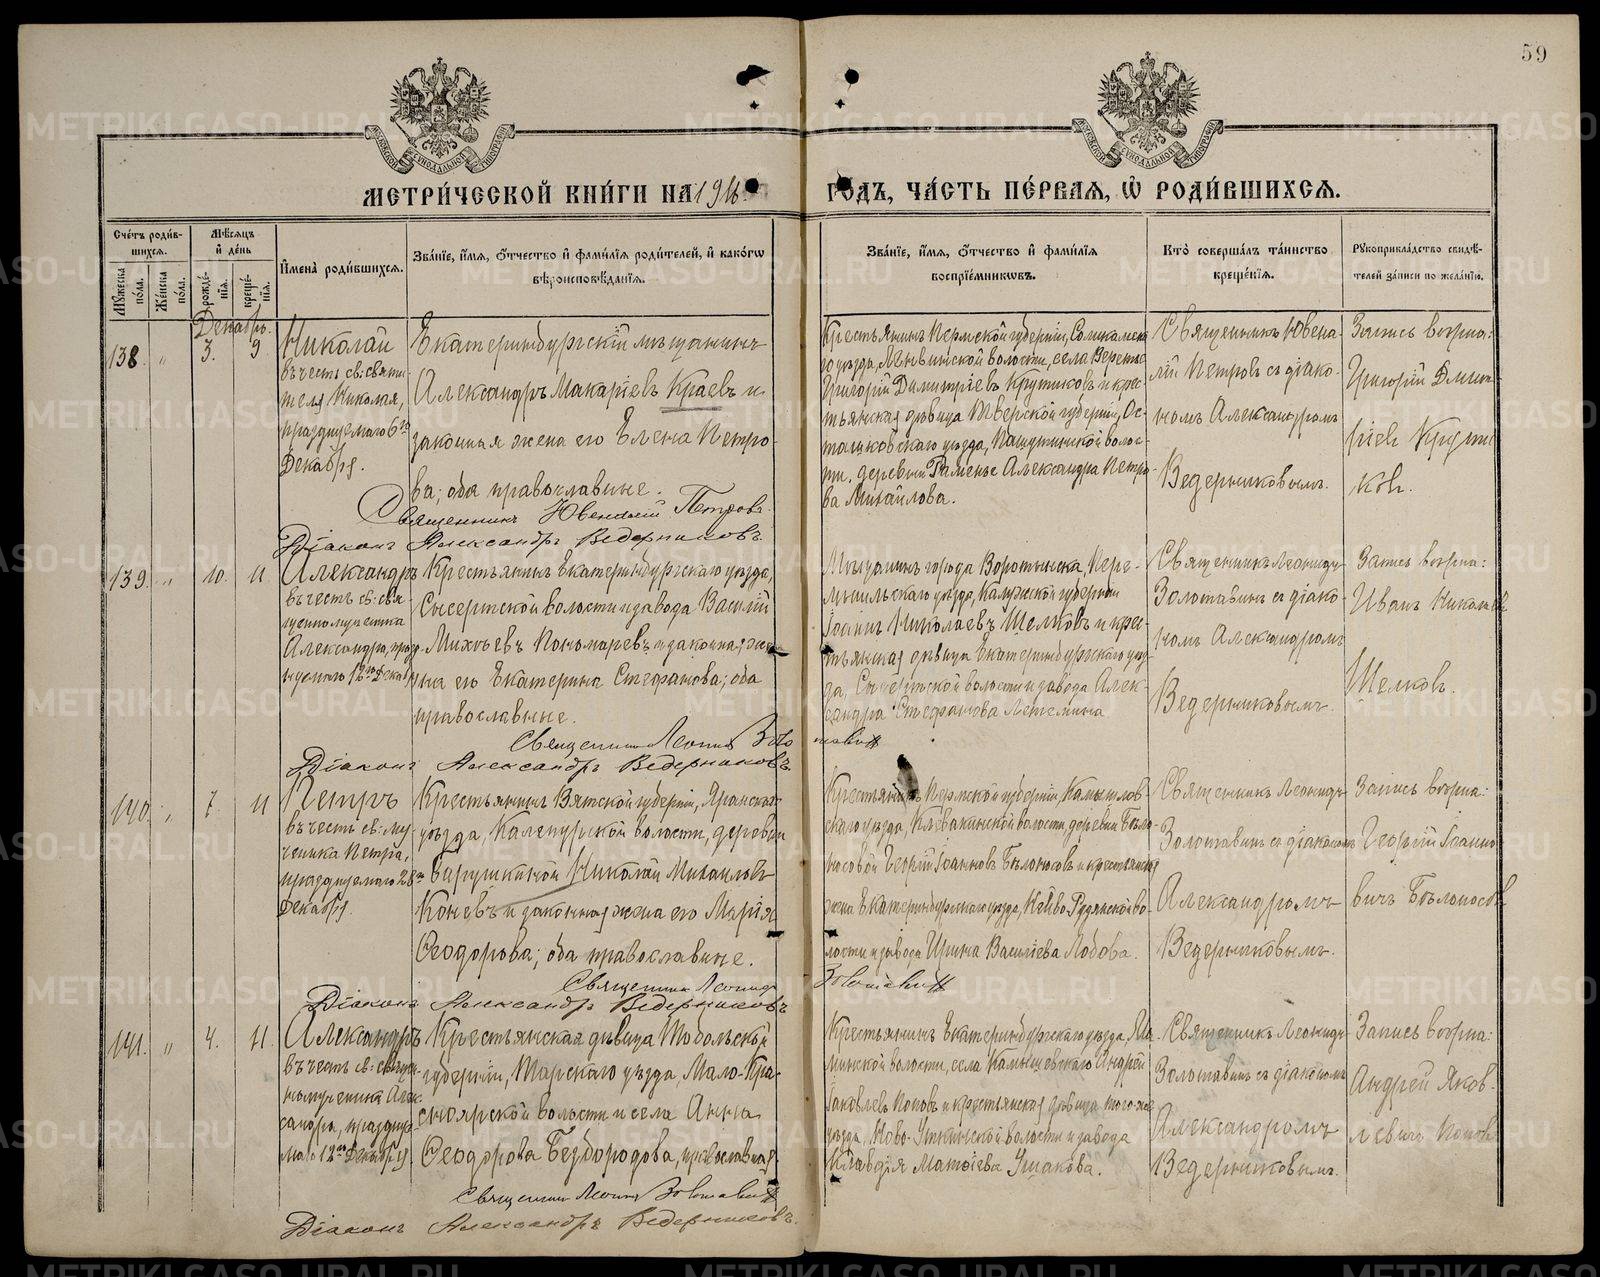 59
МЕТРИ́ЧЕСКОЙ КНИ́ГИ НА 1916 ГОДЪ, ЧА́СТЬ ПЕ́РВАЯ, Ѿ РОДИ́ВШИХСЯ.
Сче́тъ роди́вшихся.
Му́жеска по́ла.
Же́нска по́ла.
Мѣ́сяцъ и́ де́нь
рожде́нїѧ.
креще́нїѧ.
И҆мена̀ роди́вшихсѧ.
Зва́нїе, и҆́мѧ, ѻ҆́тчество и҆ фами́лїѧ роди́телей, и҆ како́гѡ
вѣроисповѣ́данїѧ.
Зва́нїе, и҆́мѧ, ѻ҆́тчество и҆ фами́лїѧ
воспрїе́мникѡвъ.
Кто̀ соверша́лъ та́инство
креще́нїѧ.
Рꙋкоприкла́дство свидѣ́-
телей за́писи по жела́нїю.
Декабрь.
138
"
3.
9
Николай
въ честь св: святи-
теля Николая,
празднуемаго 6го
Декабря.
Екатеринбургскій мѣщанинъ
Александръ Макаріевъ Краевъ и
законная жена его Елена Петро-
ва; оба православные.
Священникъ Ювеналій Петровъ
Діаконъ Александръ Ведерниковъ
Крестьянинъ Пермской губерніи, Соликамска-
го уѣзда,
волости, села
Григорій Димитріевъ Крутиковъ и крес-
тьянская дѣвица Тверской губерніи, Ос-
ташковскаго уѣзда,
волос-
ти, деревни Раменье Александра Петро-
ва Михайлова.
Священникъ Ювена-
лій Петровъ съ діако-
номъ Александромъ
Ведерниковымъ.
Запись вѣрна:
Григорій Дмит
ріев Крути
ков.
139.
"
10.
11
Александръ
въ честь св: свя-
щенномученика
Александра, празд-
нуемаго 12го Декабря
Крестьянинъ Екатеринбургскаго уѣзда,
Сысертской волости и завода Василій
Михеевъ Пономаревъ и законная же-
на его Екатерина Стефанова; оба
православные.
Священникъ Леонидъ Золо
тавинъ
Діаконъ Александръ Ведерниковъ
Мѣщанинъ города Воротынска, Пере-
мышльскаго уѣзда, Калужской губерніи
Іоаннъ Николаевъ Щелковъ и крес-
тьянская дѣвица Екатеринбургскаго уѣз-
да, Сысертской волости и завода Алек-
сандра Стефанова Летемина
Священникъ Леонидъ
Золотавинъ съ діако-
номъ Александромъ
Ведерниковымъ.
Запись вѣрна:
Иванъ Николаев
Щелков.
140.
"
7.
11
Петръ
въ честь св: му-
ченика Петра,
празднуемаго 28го
Декабря.
Крестьянинъ Вятской губерніи, Яранскаго
уѣзда,
волости, деревни
Николай Михайловъ
Коневъ и законная жена его Марія
Ѳеодорова; оба православные.
Священникъ Леонидъ
Золотавинъ
Діаконъ Александръ Ведерниковъ
Крестьянинъ Пермской губерніи, Камышлов-
скаго уѣзда, Клевакинской волости, деревни Бѣло-
носовой Георгій Іоанновъ Бѣлоносовъ и крестьянская
жена Екатеринбургскаго уѣзда, Нейво-Рудянской во-
лости и завода Ирина Васильева Лобова.
Священникъ Леонидъ
Золотавинъ съ діакономъ
Александромъ
Ведерниковымъ.
Запись вѣрна:
Георгій Іоанно
вичъ Бѣлоносов
141.
"
4.
11.
Александръ
въ честь св: священ-
номученика Алек-
сандра, празднуе-
маго 12го Декабря
Крестьянская дѣвица Тобольской
губерніи, Тарскаго уѣзда, Мало-Кра-
сноярской волости и села Анна
Ѳеодорова Безбородова, православная.
Священникъ Леонидъ Золотавинъ
Діаконъ Александръ Ведерниковъ.
Крестьянинъ Екатеринбургскаго уѣзда, Ма-
минской волости, села Камышевскаго Андрей
Іаковлевъ Поповъ и крестьянская дѣвица того-же
уѣзда, Ново-Уткинской волости и завода
Клавдія Матѳіева Ушакова.
Священникъ Леонидъ
Золотавинъ съ діакономъ
Александромъ
Ведерниковымъ.
Запись вѣрна:
Андрей Яков-
левичъ Попов
METRIKI.GASO-URAL.RU